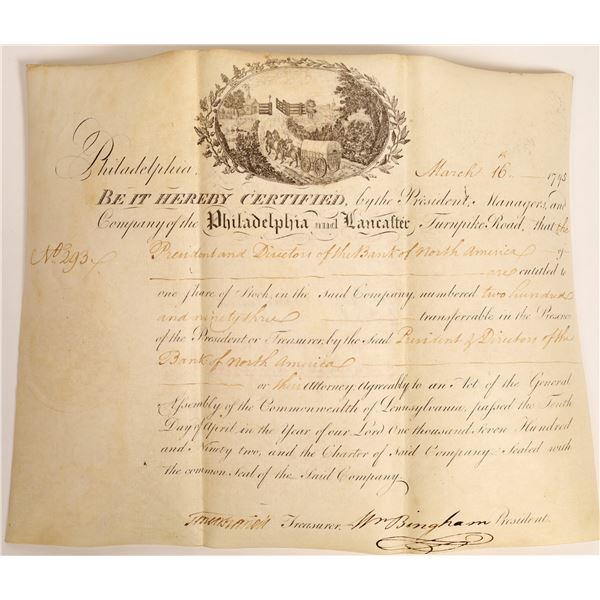 Philadelphia, March 16th 1795
BE IT HEREBY CERTIFIED, by the President, Managers, and
Company of the Philadelphia and Lancaster, Turnpike Road, that the
No. 293. President and Directors of the Bank of North America of
are entitled to
one share of Stock, in the Said Company, numbered two hundred
and ninety three transferable in the Presence
of the President or Treasurer, by the Said President & Directors of the
Bank of North America
or their Attorney, Agreeably to an Act of the General
Assembly of the Commonwealth of Pennsylvania, passed the Tenth
Day of April in the Year of our Lord One thousand Seven Hundred
and Ninety two, and the Charter of Said Company. Sealed with
the common Seal of the Said Company.
Treasurer. Wm Bingham President.